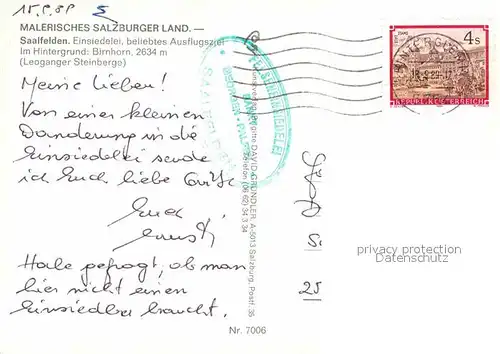 15.8.89 5
MALERISCHES SALZBURGER LAND. —
Saalfelden. Einsiedelei, beliebtes Ausflugsziel
Im Hintergrund: Birnhorn, 2634 m
(Leoganger Steinberge)
Meine Lieben!
Von einer kleinen
Wanderung in die
Einsiedelei sende
ich Euch liebe Grüße
Euer
Ernst
Habe gefragt, ob man
hier nicht einen
Einsiedler braucht.
Nr. 7006
DAVID-GRÜNDLER, A-5013 Salzburg, Postf. 35
Telefon (06 62) 34 3 34
4s
REPUBLIK ÖSTERREICH
25
privacy protection